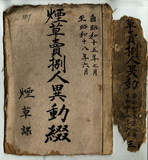 自昭和十五年七月
至昭和十八年六月
煙草賣捌人異動綴
煙草課
草賣捌人異動